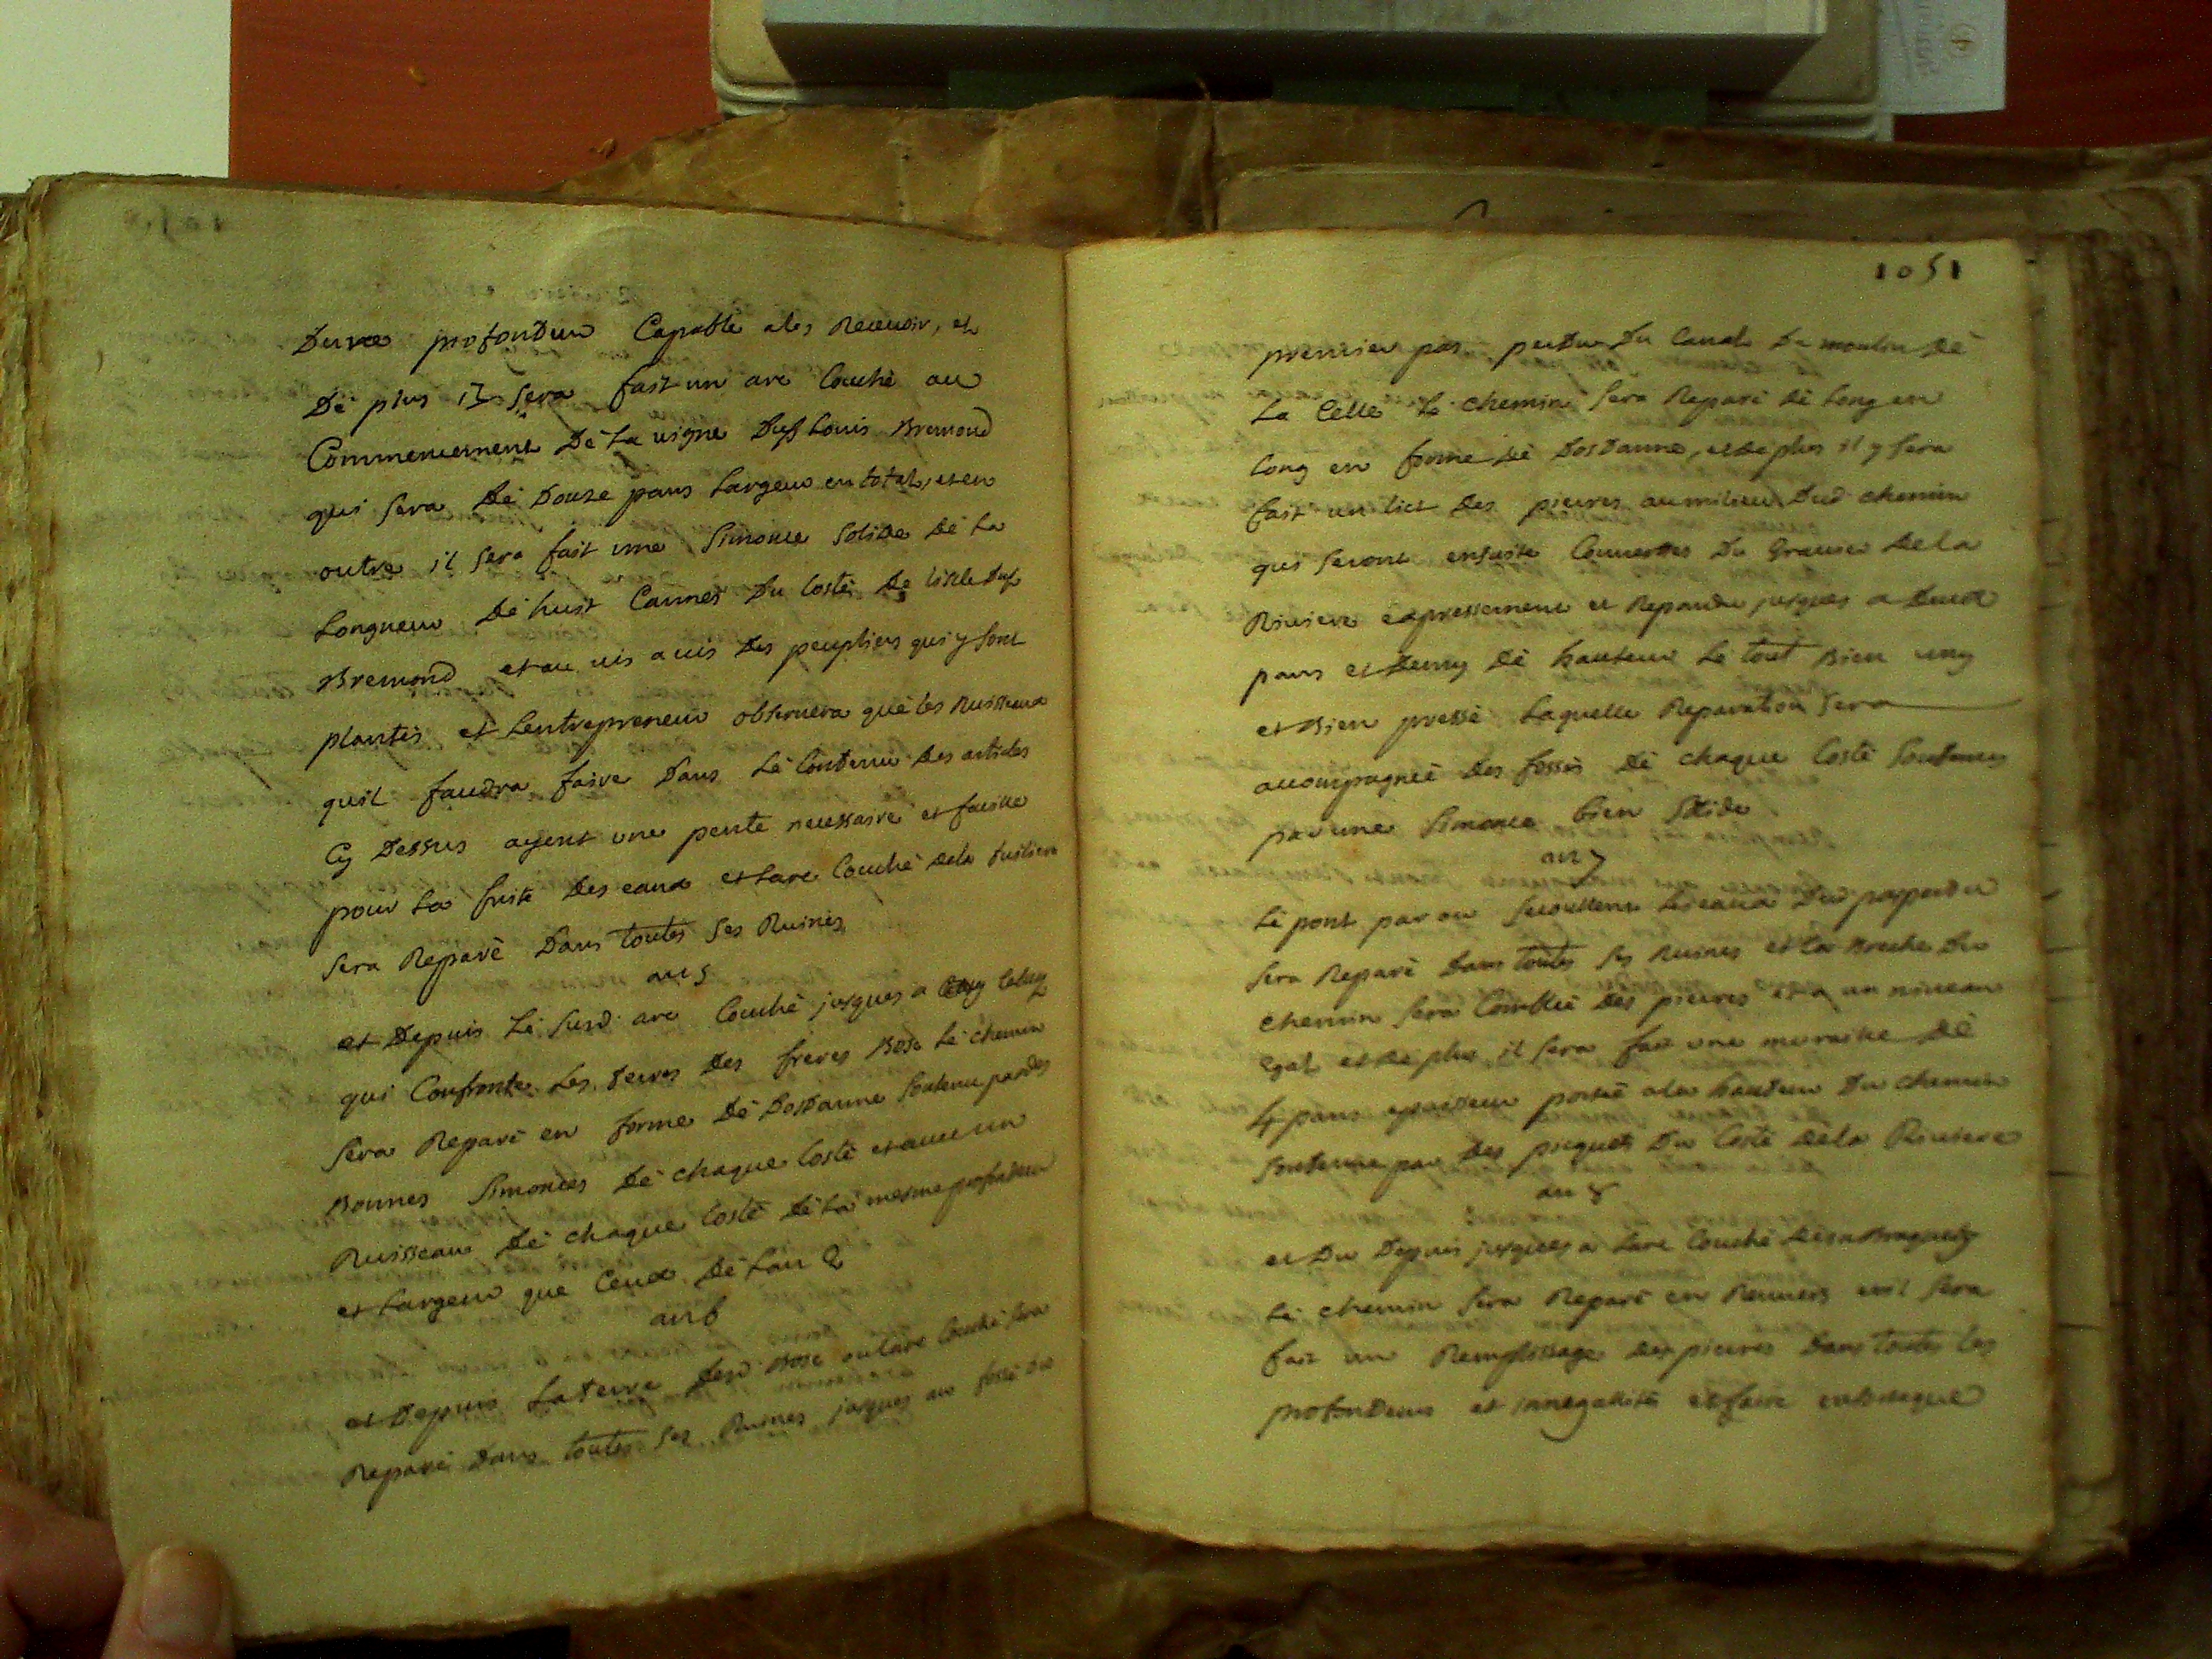 Dune profondeur Capable ales Recevoir, et
Dé plus il sera fait un arc Couché au
Commencement Dé La vigne Duf Louis Bremond
qui sera Dé Douze pans Largeur en total, et en
outre il sera fait une Simonce Solide Dé La
Longueur Dé huit Cannes Du Costé De liscle Duf
Bremond et au vis a vis Des peupliers qui y sont
plantés et Lentrepreneur observera qué les Ruisseaux
quil faudra faire Dans Lé Contenu Des articles
Cy Dessus ayent une pente necessaire et facille
pour La fuite Des eaux et Larc Couché Dela tuiliere
sera Reparé Dans toutes ses Ruines
art 5
et Depuis Lé susd. arc Couché jusques a celuy
qui Confronte Les terres Des freres Bose Lé chemin
sera Reparé en forme Dé Dosdanne soutenu par Des
Bonnes Simonces Dé chaque Costé et avec un
Ruisseau Dé chaque Costé Dé La mesme profondeur
et Largeur que Ceux Dé Lart 2
art 6
et Depuis La terre Desd Bose ou Larc Couché sera
Reparé Dans toutes ses Ruines jusques au fossé du
1051
premier pas perdu Du Canal Du moulin Dé
La Celle Le chemin sera Reparé Dé Long en
Long en forme Dé Dosdanne, et De plus il y sera
fait un lict Des pierres au milieu Dud chemin
qui seront ensuite Couvertes Du Gravier De la
Riviere expressement et Repandu jusques a Deux
pans et Demy Dé hauteur Lé tout Bien uny
et Bien pressé Laquelle Reparation sera
accompagnée Des fossés Dé chaque Costé soutenus
par une Simonce bien solide
art 7
Lé pont par ou secoullent Les eaux Dud pas perdu
sera Reparé Dans toutes ses Ruines et La Breche Du
chemin sera Comblée Des pierres et a un niveau
Egal et De plus il sera fait une muraille Dé
4 pans epaisseur portée a la hauteur Du chemin
soutenue par Des piquets Du Costé Dé la Riviere
art 8
et Du Depuis jusques a Larc Couché
Lé chemin sera Reparé en sera
fait un Remplissage Des pierres Dans toutes les
profondeurs et innegallité et faire